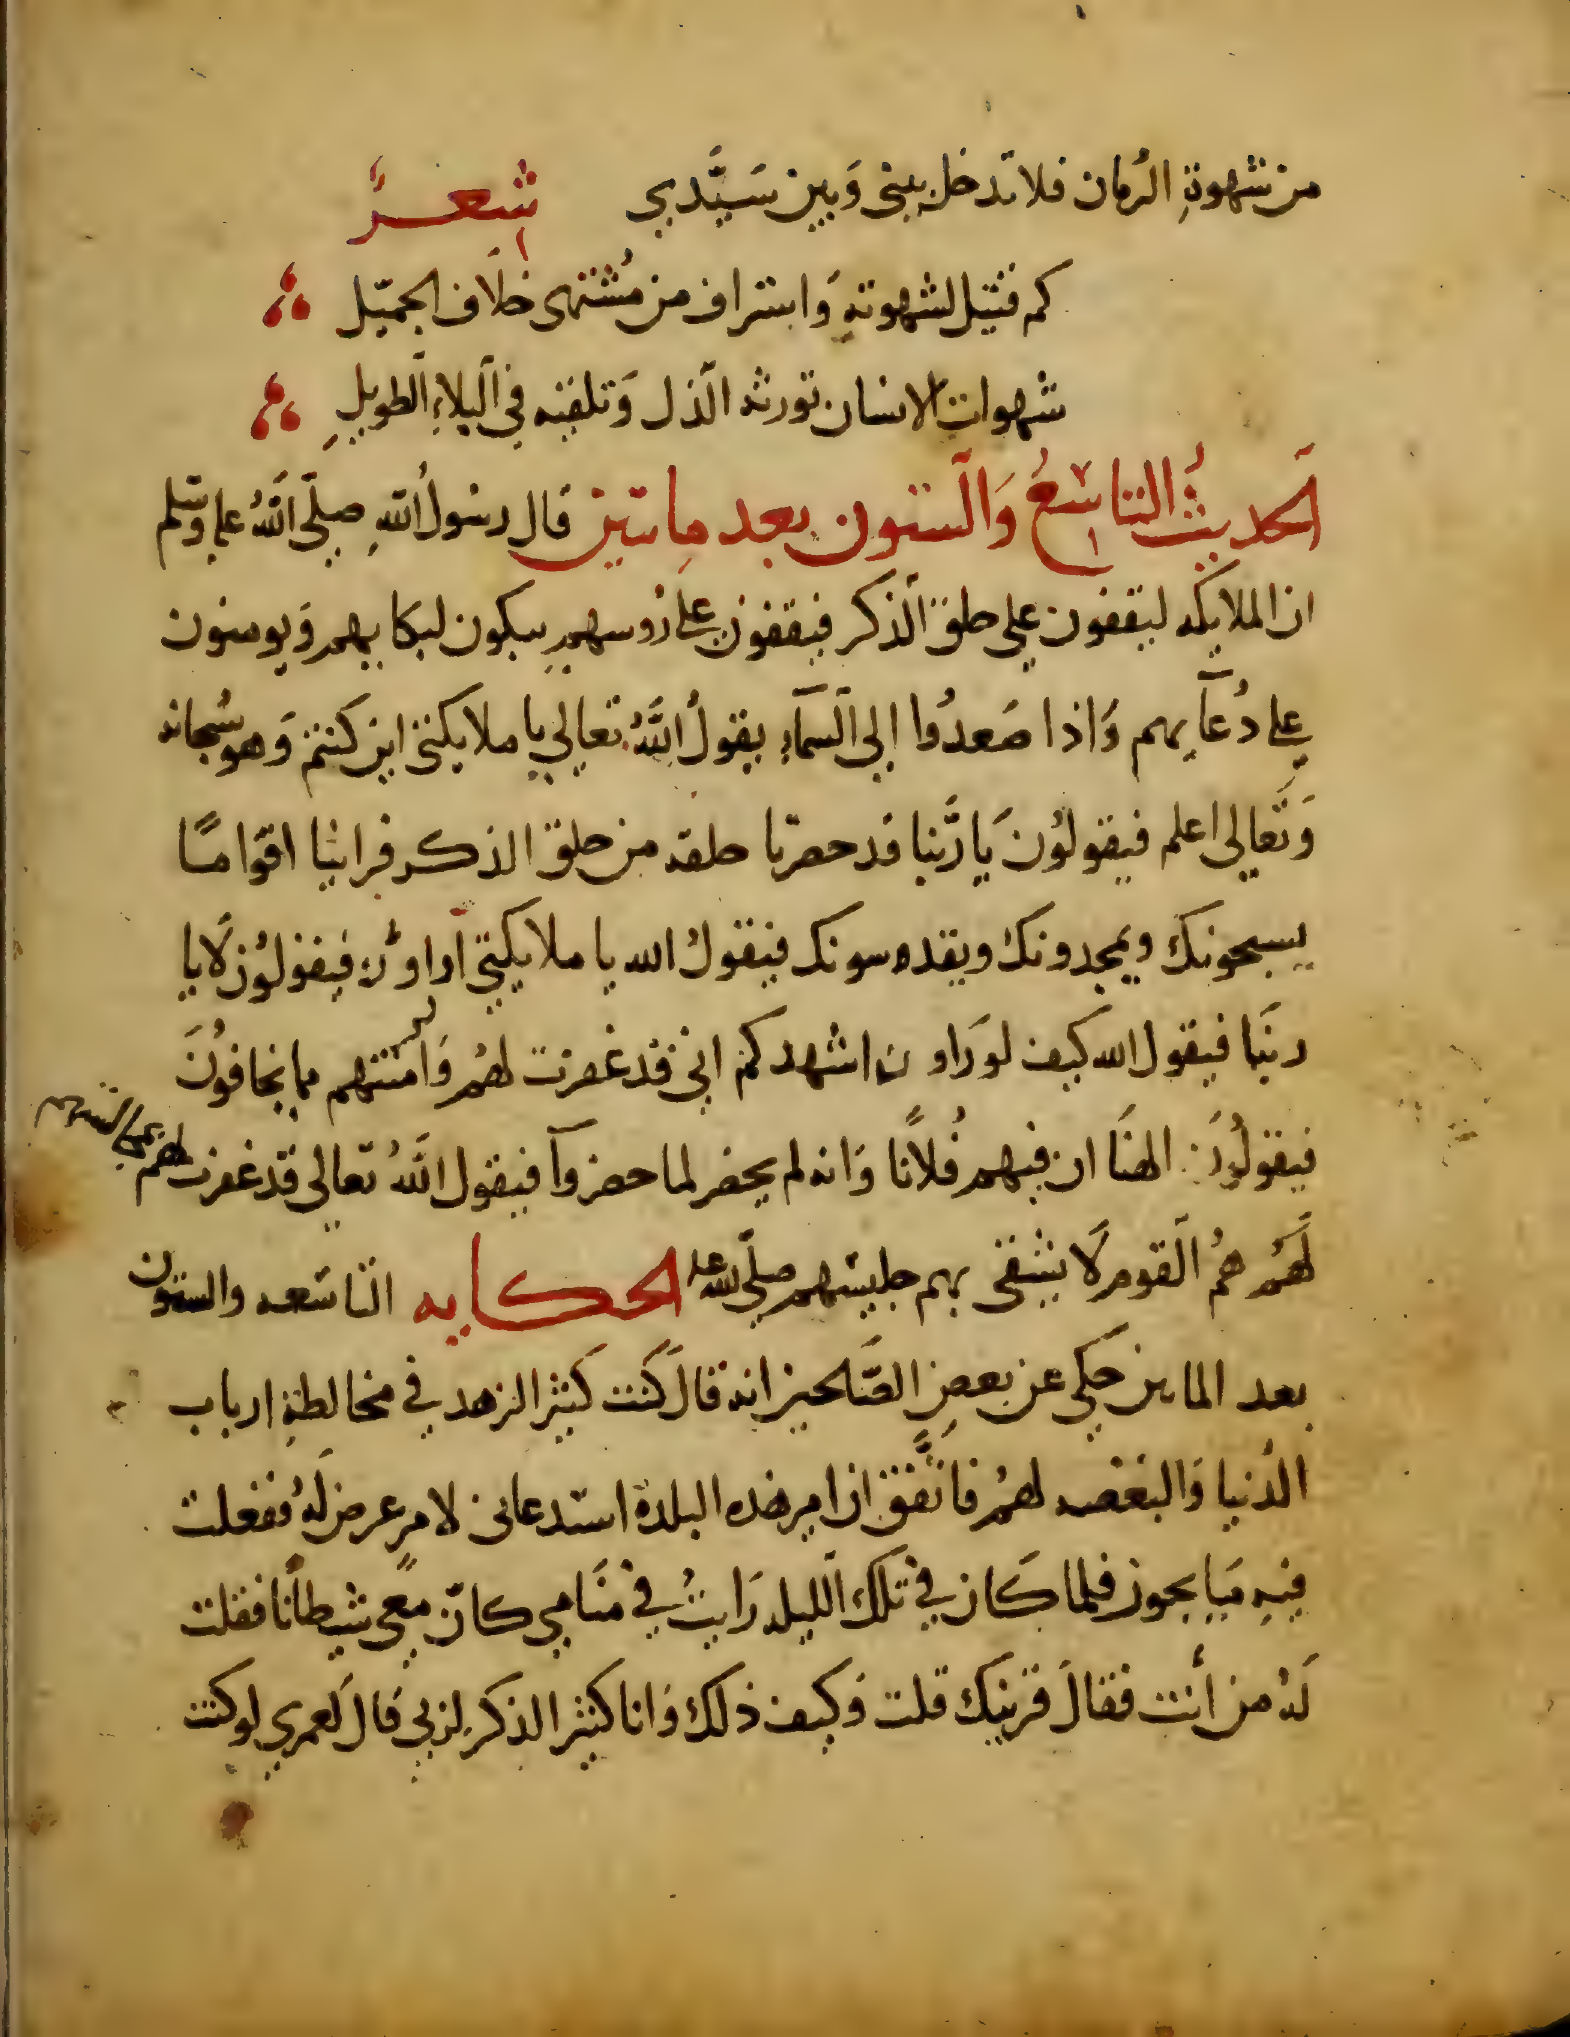 من شهوة الرمان فلا تدخل بيني وَبين سَيَّدي شعرٌ
كم قتيل لشهوته وَاسراف من مُشتهى خلَاف الجميل
شهوات الانسان تورثه الذل وَتلقيه في البلاءِ الطويلِ
الحديثُ التاسعُ وَالستون بعد ماىتين قال رسُولُ اللهِ صلّى اللهُ عليه وسّلم
ان الملايكه ليقفون على حلق الذكر فيقفون على رُوسهم يبكون لبكايهم وَيومنون
على دُعآيهم وَاذا صَعدُوا إلى السمآءِ يقولُ اللهُ تعالي يا ملايكتي اين كنتم وَهو سُبحانه
وَتَعالي اعلم فيقولُونَ يَا رَّبنا قد حضرنا حلقه من حلق الذكر فراينا اقوامًا
يسبحونك ويمجدونك ويقدسونك فيقولُ الله يا ملايكتي اراوني فيقولُون لَا يا
ربنَا فيقول الله كيف لو رَاوني اشهدكم اني قد غفرت لهُم وَامنتهم مما يخافُونَ
فيقولُونَ الهنَا ان فيهم فُلانًا وَانه لم يحضر لما حضروآ فيقول اللهُ تعالى قد غفرت لهم
لَهُم هُم القوم لَا يشقى بهم جليسهم صلّى الله عليه الحكايه التاسعه والستون
بعد الماىىن حكي عن بعضِ الصَّلحين انه قالَ كنت كثير الزهد في مخالطة ارباب
الدُنيا وَالبغضه لهُم فاتَّفق ان امير هذه البلدة استدعاني لامرٍ عرض لَهُ ففعلت
فيهِ مَا يجوز فلما كَان في تلك الليله رَايتُ في منَامي كانّ معِي شيطانًا فقلت
لَهُ من أنت فقالَ قرينك قلت وَكيف ذلك وَانا كثير الذكر لربي قالَ لَعمري لو كنت